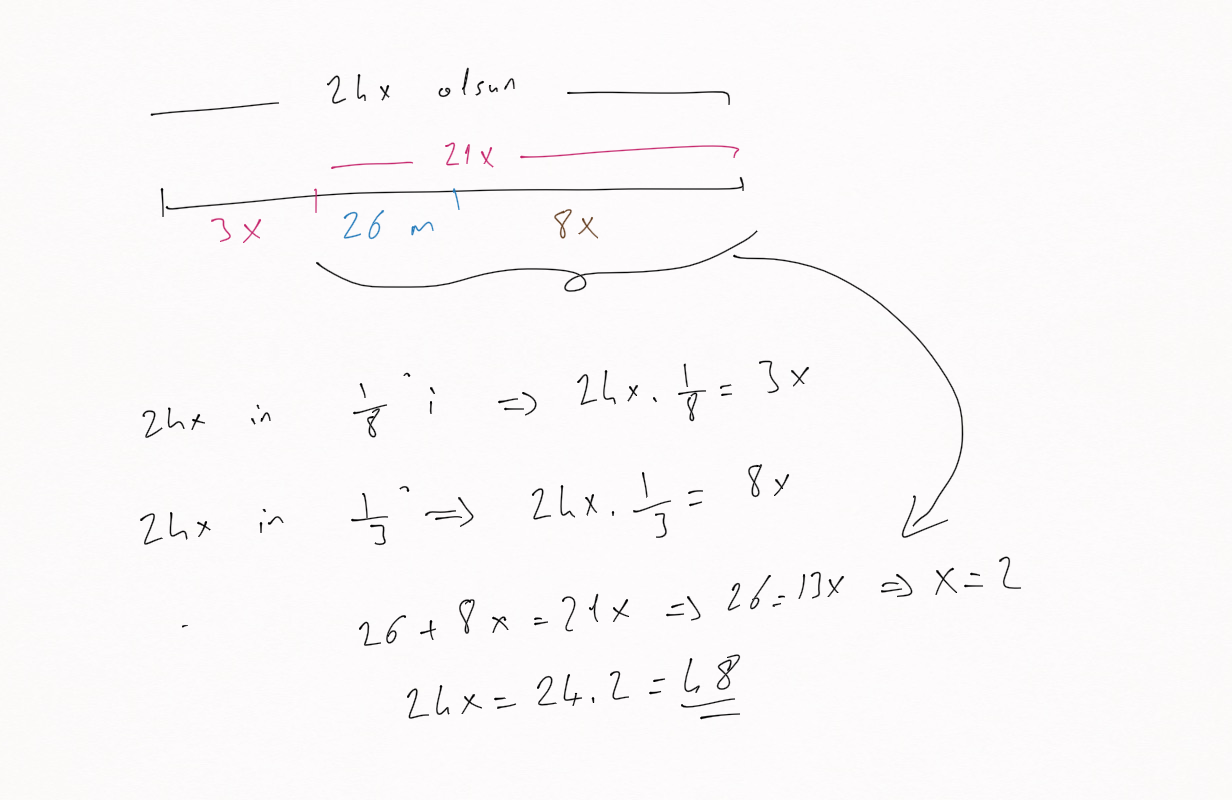 24x olsun
21x
3x 26 m 8x
24x in 1/8 'i => 24x . 1/8 = 3x
24x in 1/3 ' => 24x . 1/3 = 8x
26 + 8x = 21x => 26 = 13x => x = 2
24x = 24 . 2 = 48